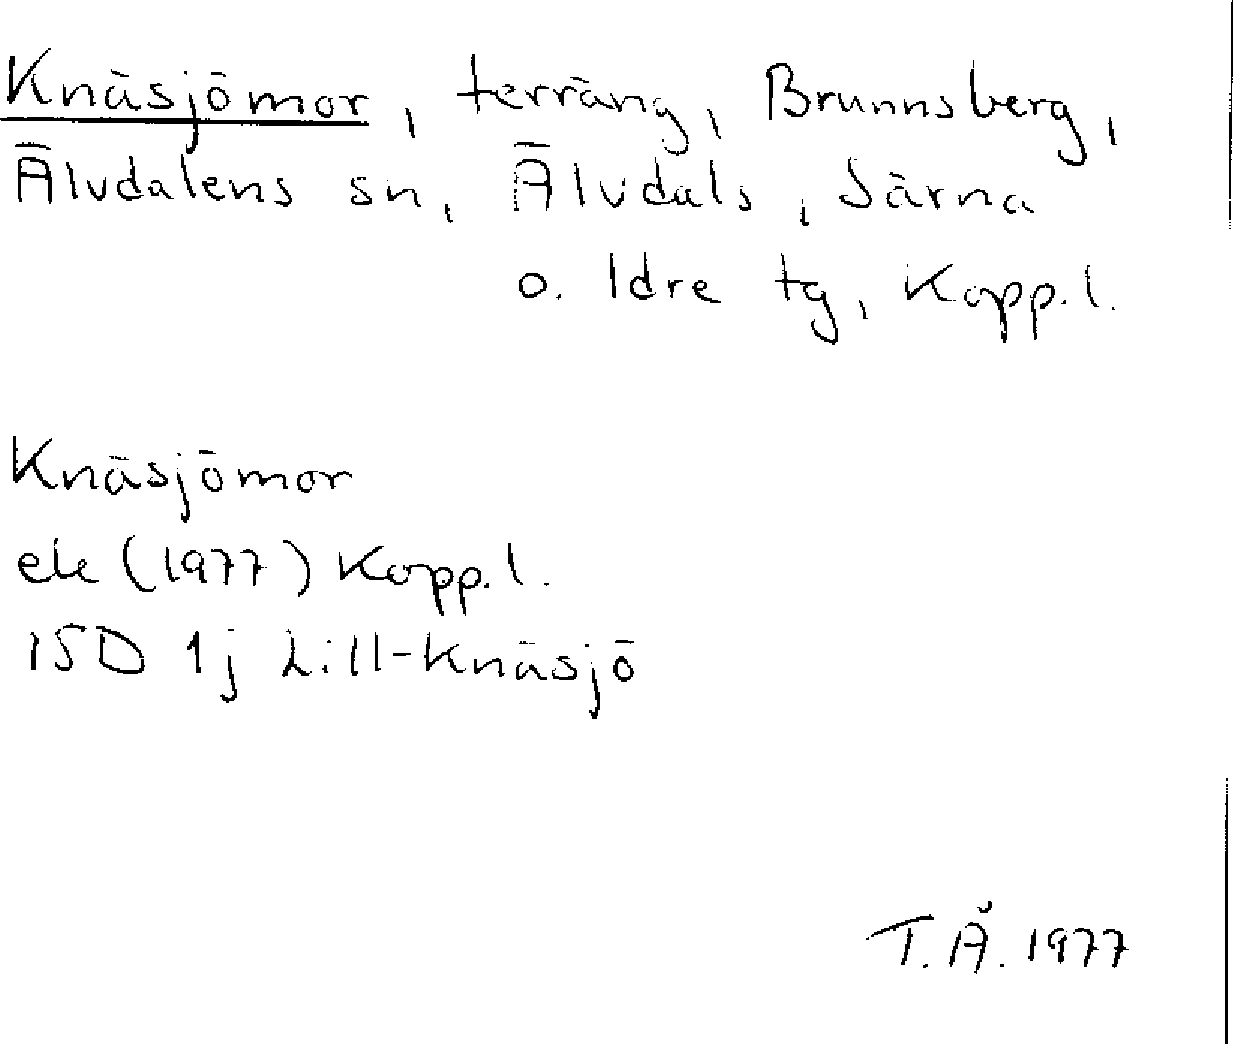 Knäsjömor, terräng, Brunnsberg,
Älvdalens sn, Älvdals, Särna
o. Idre tg, Kopp.l.
Knäsjömor
ek (1977) Kopp.l.
15D 1j Lill-Knäsjö
T.Å. 1977